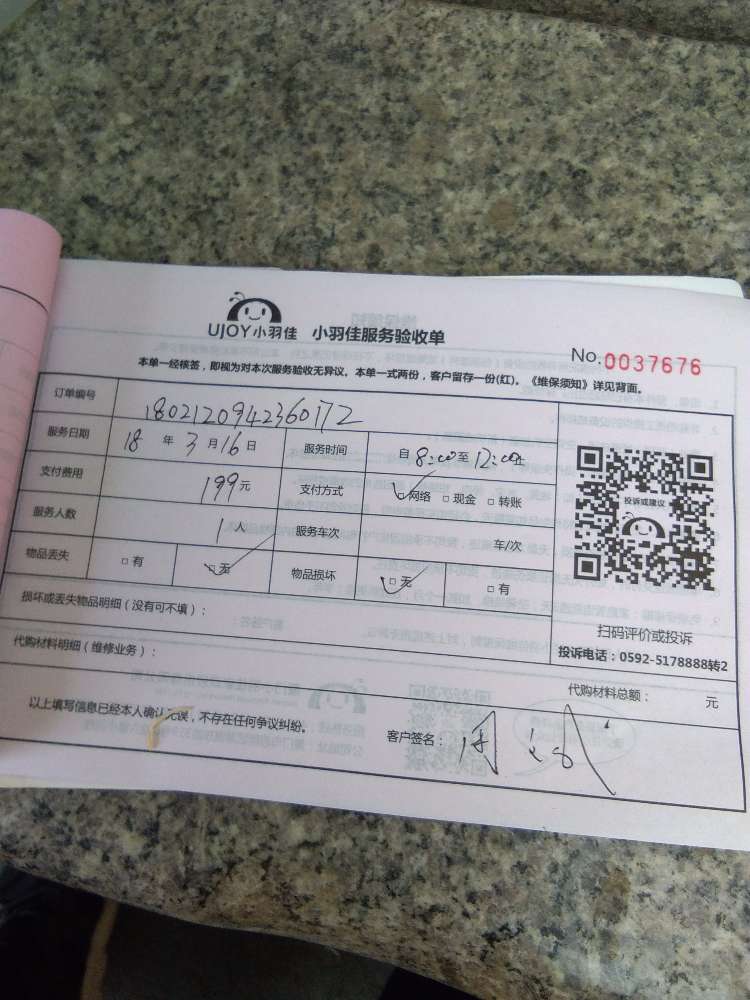 UJOY小羽佳 小羽佳服务验收单
No.0037676
本单一经核签，即视为对本次服务验收无异议。本单一式两份，客户留存一份(红)。《维保须知》详见背面。
订单编号 1802120942360172
服务日期 18 年 3 月 16 日 服务时间 自 8:00 至 12:00止
支付费用 199元 支付方式 网络 现金 转账
服务人数 1人 服务车次 车/次
物品丢失 有 无 物品损坏 无 有
损坏或丢失物品明细（没有可不填）：
代购材料明细（维修业务）：
代购材料总额： 元
以上填写信息已经本人确认无误，不存在任何争议纠纷。
客户签名： 周
投诉或建议
扫码评价或投诉
投诉电话：0592-5178888转2